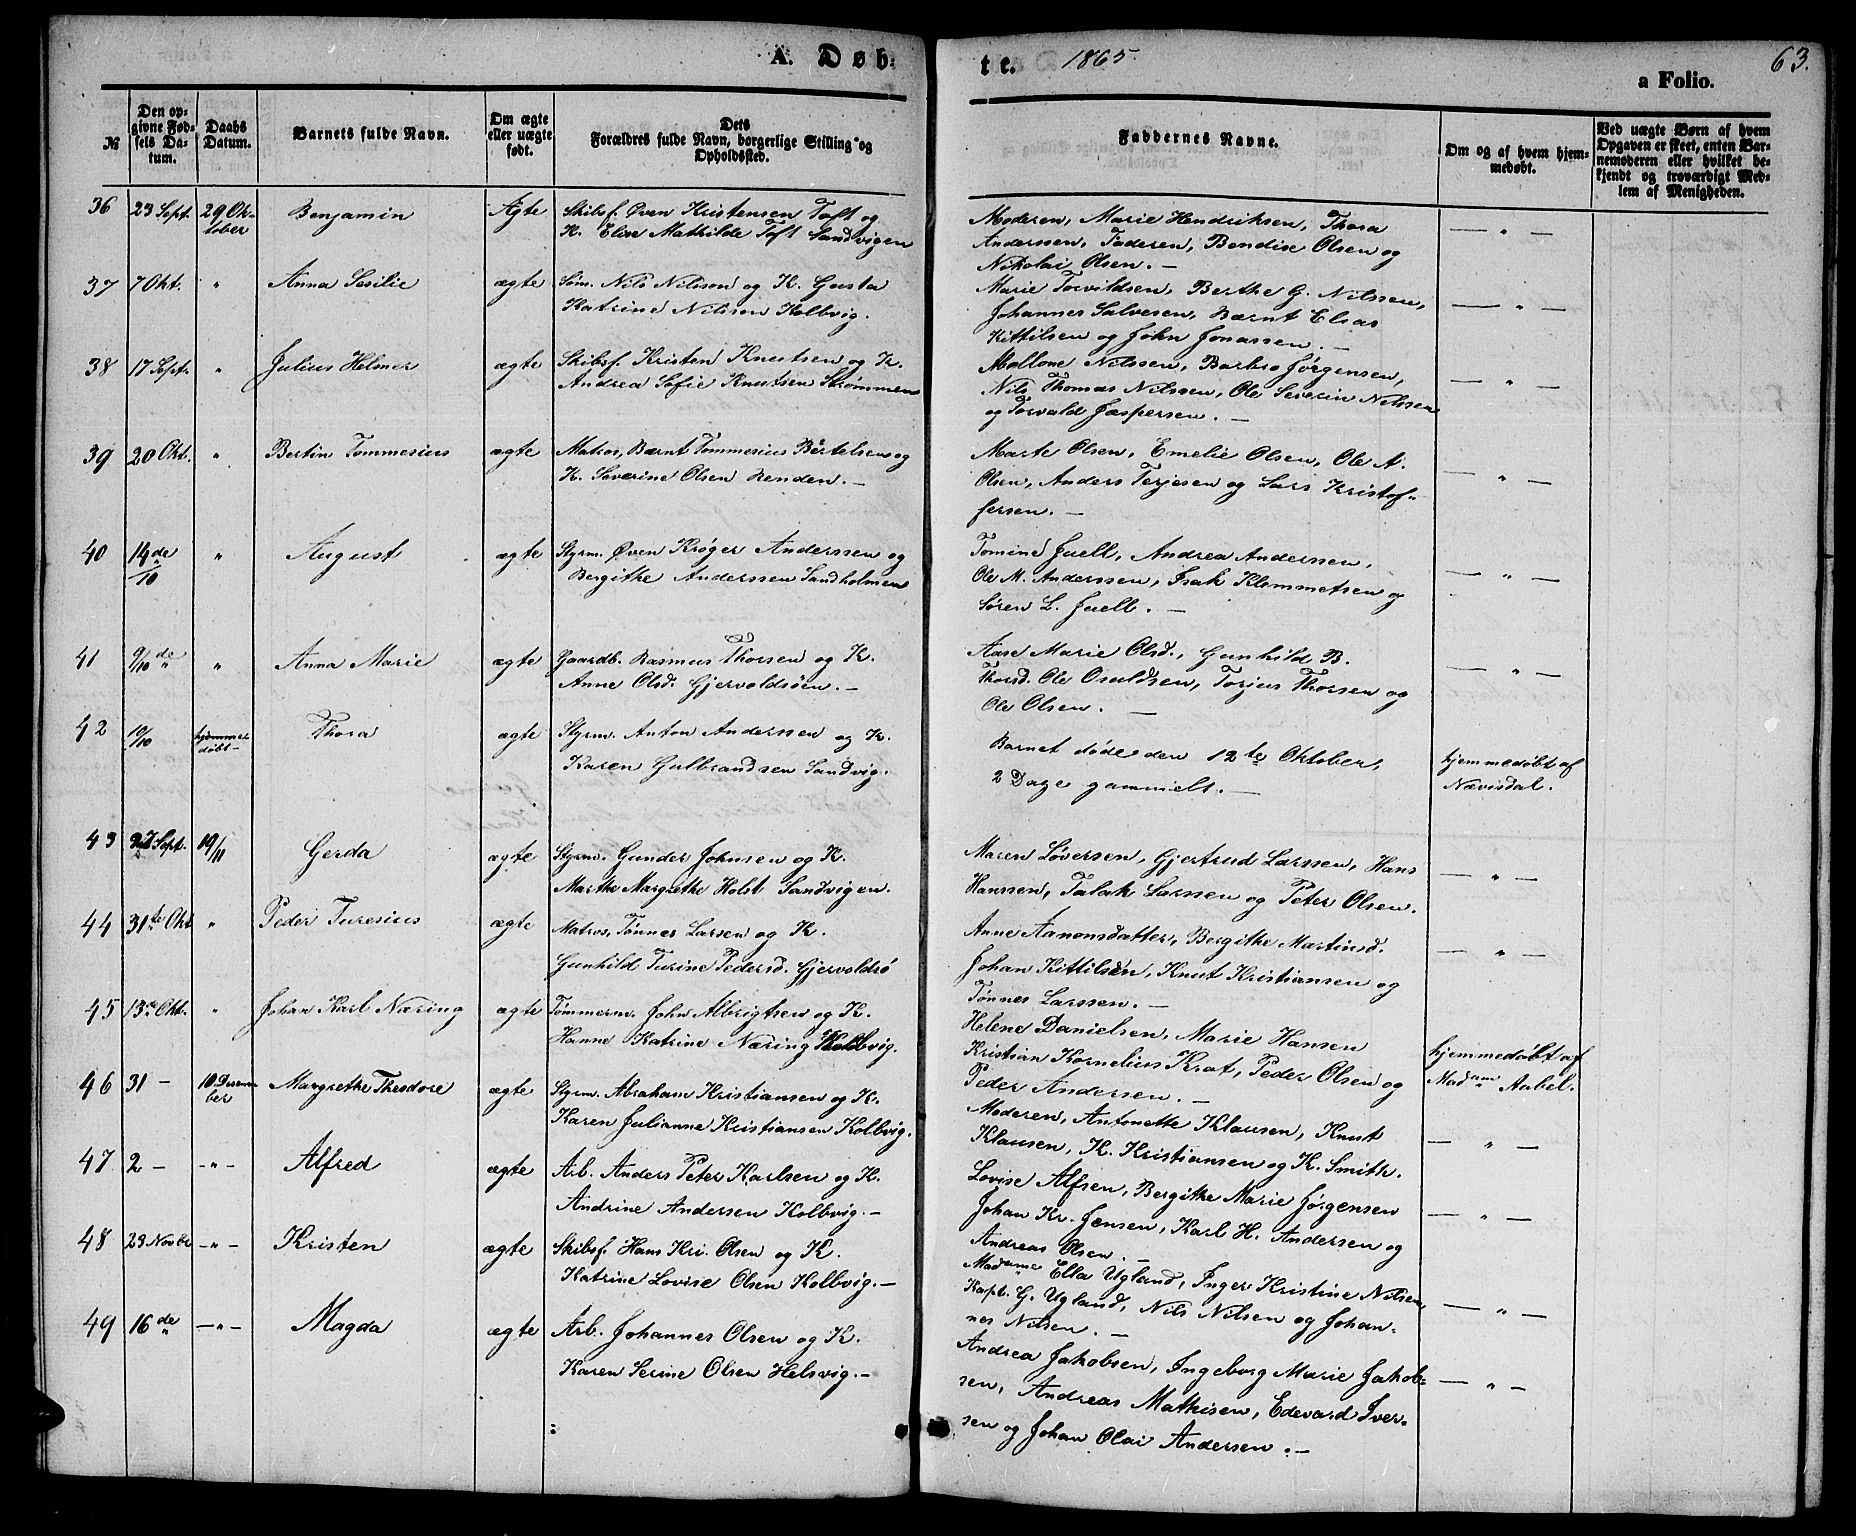 A. Døb=
te. 1865.
a Folio.
63.
№
Den op=
givne Fød=
sels Da=
tum.
Daabs
Datum.
Barnets fulde Navn.
Om ægte
eller uægte
født.
Dets
Forældres fulde Navn, borgerlige Stilling og
Opholdssted.
Faddernes Navne.
Om og af hvem hjem=
medøbt.
Ved uægte Børn af hvem
Opgaven er skeet, enten Bar=
nemoderen eller hvilket be=
kjendt og troværdigt Med=
lem af Menigheden.
36 23 Sept. 29 Ok-
tober
Benjamin
Ægte
Skibsf. Øven Kristensen Toft og
K. Elise Mathilde Toft Sandvigen
Moderen, Marie Hendriksen, Thora
Anderssen, Faderen, Bendix Olsen og
Nikolai Olsen. —
— „ —
37 7 Okt. „ Anna Sesilie ægte
Søm. Nils Nilsson og K. Gusta
Katrine Nilsson Kolbvig.
Marie Torvildsen, Berthe G. Nilssen,
Johannes Salvesen, Bærnt Elias
Kittilsen og John Jonassen. —
— „ —
38 17 Sept. „ Julius Helmer ægte
Skibsf. Kristen Knutsen og K.
Andrea Sofie Knutsen Strømmen
Mallone Nilssen, Barbro Jørgensen,
Nils Thomas Nilssen, Ole Severin Nilssen
og Torvald Jaspersen. —
— „ —
39 20 Okt. „ Bertin Tommesius ægte
Matros, Bærnt Tommesius Bertelsen og
K. Severine Olsen Renden. —
Marte Olsen, Emelie Olsen, Ole A.
Olsen, Anders Terjesen og Lars Kristof-
fersen. —
— „ —
40 14de/10 „ August ægte
Styrm. Øven Krøger Anderssen og
Bergithe Anderssen Sandholmen
Tomine Juell, Andrea Anderssen,
Ole M. Anderssen, Isak Klemmetsen og
Søren L. Juell. —
— „ —
41 9/10 de „ Anna Marie ægte
Gaardb. Rasmus Thorsen og K.
Anne Olsd. Gjervoldsøen. —
Aase Marie Olsd., Gunhild B.
Thorsd. Ole Osuldsen, Torjus Thorsen og
Ole Olsen. —
— „
42 10/10 hjemme
døbt —
Thora ægte
Styrm. Anton Anderssen og K.
Karen Gulbrandsen Sandvig.
Barnet døde den 12te Oktober,
2 Dage gammelt. —
hjemmedøbt af
Nævisdal.
43 27 Sept. 19/11 Gerda ægte
Styrm. Gunder Johnsen og K.
Marthe Margrethe Holst Sandvigen.
Maren Løversen, Gjertrud Larssen, Hans
Hanssen, Talak Larssen og Peter Olsen.
— „ —
44 31te Okt „ Peder Turesius ægte
Matros, Tønnes Larsen og K.
Gunhild Turine Pedersd. Gjervoldsø
Anne Aanonsdatter, Bergithe Martinsd.
Johan Kittilsen, Knut Kristiansen og
Tønnes Larssen. —
— „ —
45 13de Okt. „ Johan Karl Næring ægte
Tømmerm. John Albrigtsen og K.
Hanne Katrine Næring Kolbvig.
Helene Danielsen, Marie Hansen
Kristian Kornelius Krat, Peder Olsen og
Peder Andersen. —
hjemmedøbt af
Madam Aabel.
46 31 — 10 Decem
ber
Margrethe Theodore ægte
Styrm. Abraham Kristiansen og K.
Karen Julianne Kristiansen Kolbvig.
Moderen, Antonette Klausen, Knut
Klausen, K. Kristiansen og K. Smith.
— „ —
47 2 — —„— Alfred ægte
Arb. Anders Peter Karlsen og K.
Andrine Andersen Kolbvig. —
Lovise Alfsen, Bergithe Marie Jørgensen
Johan Kr. Jensen, Karl H. Andersen og
Andreas Olsen. —
— „ —
48 23 Novbr —„— Kristen ægte
Skibsf. Hans Kri. Olsen og K.
Katrine Lovise Olsen Kolbvig. —
Madame Ella Ugland, Inger Kristine Nilsen,
Kapt. G. Ugland, Nils Nilsen og Johan=
nes Nilsen. —
— „ —
49 16de —„— Magda ægte
Arb. Johannes Olsen og K.
Karen Serine Olsen Helsvig. —
Andrea Jakobsen, Ingeborg Marie Jakob=
sen, Andreas Mathisen, Edevard Iver=
sen og Johan Olai Andersen. —
— „ —